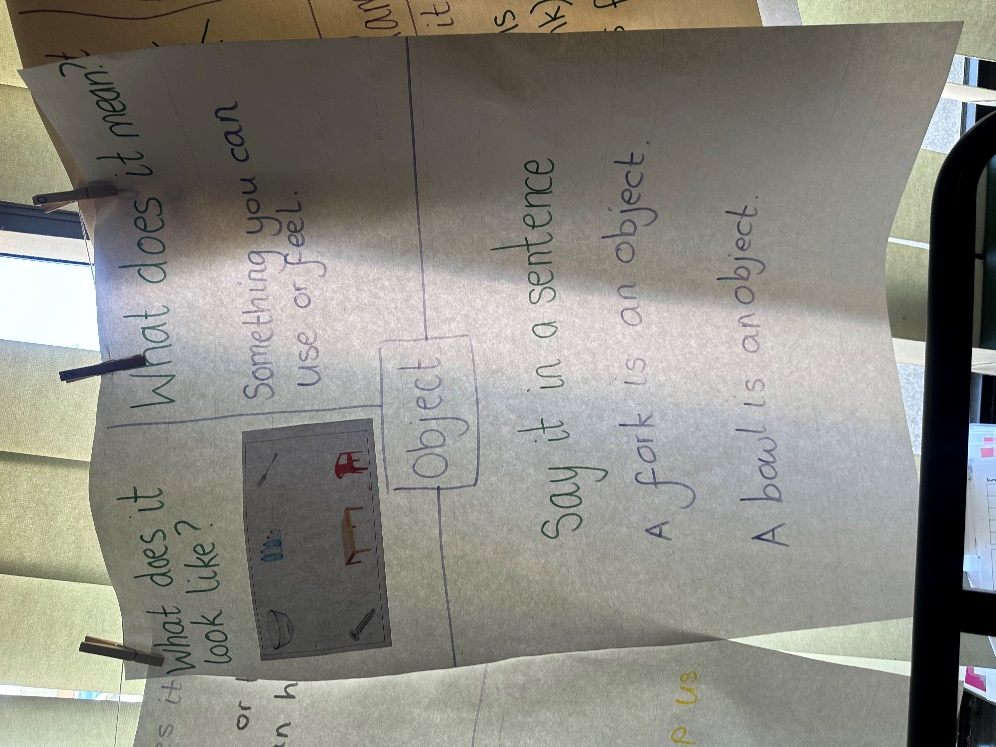 What does it
look like?
What does it mean?
Something you can
use or feel.
Object
Say it in a sentence
A fork is an object.
A bowl is an object.
or
p us